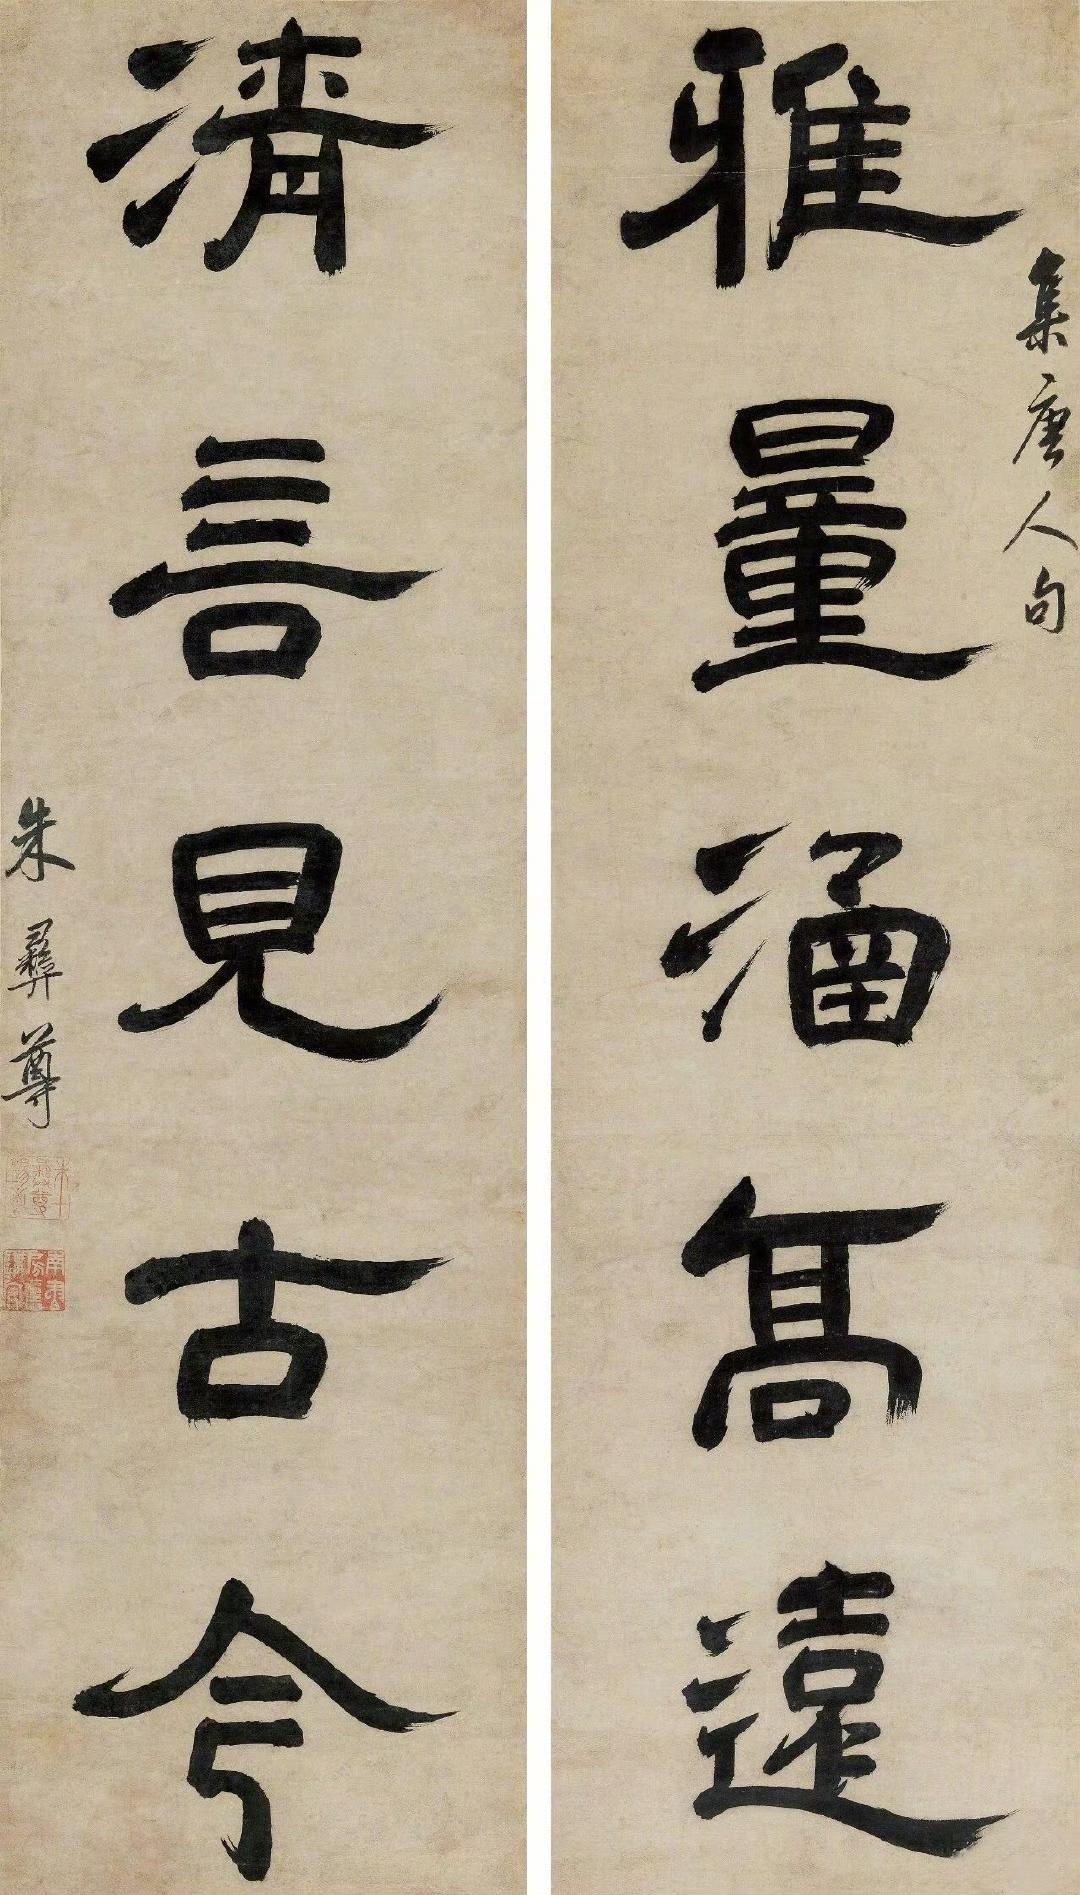 集唐人句
雅量涵高遠
清言見古今
朱彝尊